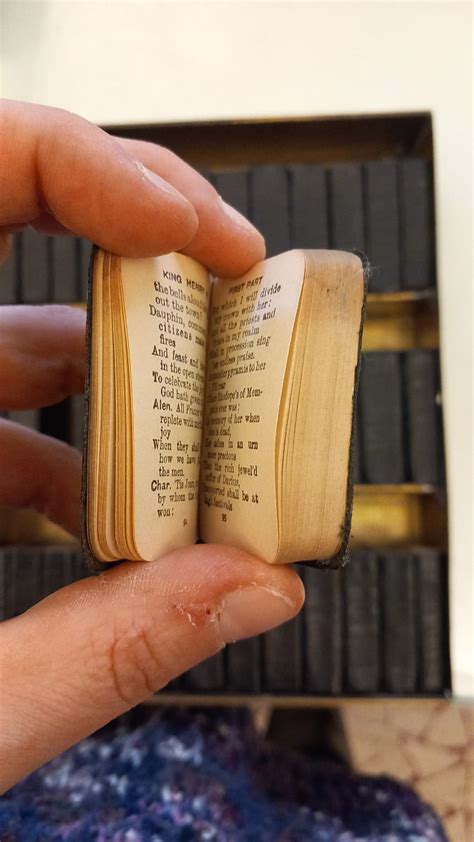 KING HENRY
the bells aloud
out the town!
Dauphin,
citizens
fires
And feast and
in the open
To celebrate the
God hath
Alen. All
replete with
joy
When they
how we
the men.
Char. 'Tis Joan,
by whom the
won:
94
FIRST PART
which I will divide
my crown with her:
all the priests and
in my realm
in procession sing
her endless praise.
pyramis to her
Rhodope's of Mem-
ever was:
memory of her when
is dead,
ashes in an urn
more precious
Than the rich jewel'd
coffer of Darius,
shall be at
high festivals
95